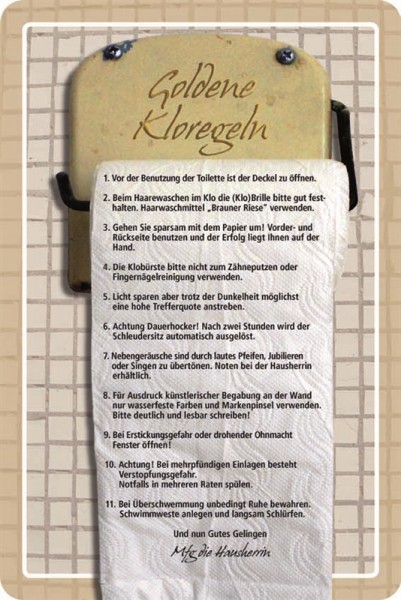 Goldene
Kloregeln
1. Vor der Benutzung der Toilette ist der Deckel zu öffnen.
2. Beim Haarewaschen im Klo die (Klo)Brille bitte gut fest-
halten. Haarwaschmittel „Brauner Riese" verwenden.
3. Gehen Sie sparsam mit dem Papier um! Vorder- und
Rückseite benutzen und der Erfolg liegt Ihnen auf der
Hand.
4. Die Klobürste bitte nicht zum Zähneputzen oder
Fingernägelreinigung verwenden.
5. Licht sparen aber trotz der Dunkelheit möglichst
eine hohe Trefferquote anstreben.
6. Achtung Dauerhocker! Nach zwei Stunden wird der
Schleudersitz automatisch ausgelöst.
7. Nebengeräusche sind durch lautes Pfeifen, Jubilieren
oder Singen zu übertönen. Noten bei der Hausherrin
erhältlich.
8. Für Ausdruck künstlerischer Begabung an der Wand
nur wasserfeste Farben und Markenpinsel verwenden.
Bitte deutlich und lesbar schreiben!
9. Bei Erstickungsgefahr oder drohender Ohnmacht
Fenster öffnen!
10. Achtung! Bei mehrpfündigen Einlagen besteht
Verstopfungsgefahr.
Notfalls in mehreren Raten spülen.
11. Bei Überschwemmung unbedingt Ruhe bewahren.
Schwimmweste anlegen und langsam Schlürfen.
Und nun Gutes Gelingen
Mfg die Hausherrin